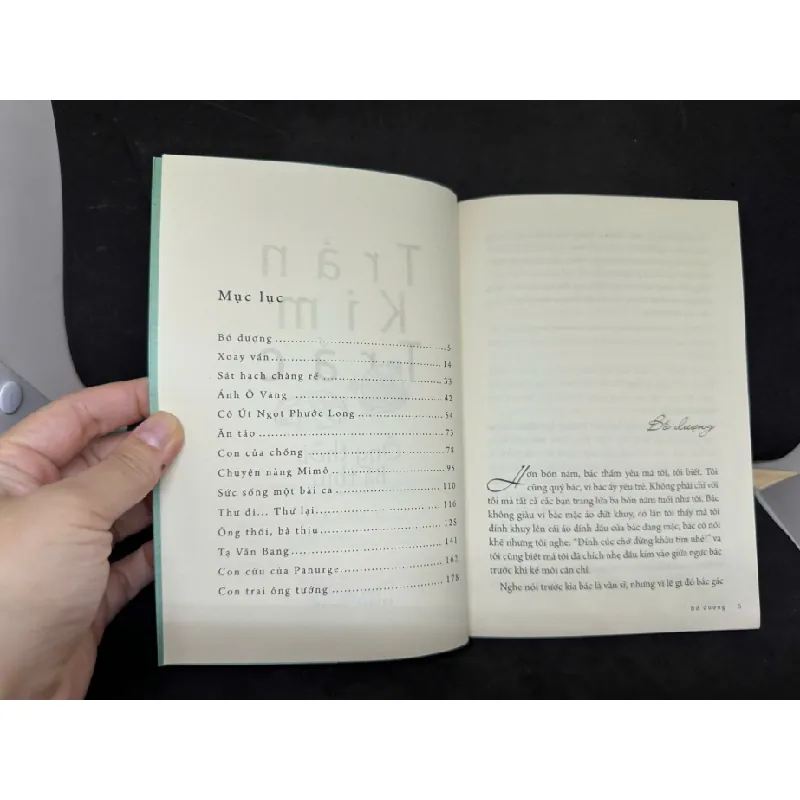 Mục lục
Bố dượng 5
Xoay vần 14
Sát hạch chàng rể 33
Ánh Ô Vang 42
Cô Út Ngọt Phước Long 54
Ăn táo 75
Con của chồng 78
Chuyện nàng Mimô 95
Sức sống một bài ca 110
Thư đi... Thư lại 116
Ông thổi, bà thịu 125
Tạ Văn Bang 141
Con cừu của Panurge 162
Con trai ông tướng 178
Bố dượng
Hơn bốn năm, bác thầm yêu má tôi, tôi biết. Tôi
cũng quý bác, vì bác ấy yêu trẻ. Không phải chỉ với
tôi mà tất cả các bạn trang lứa ba bốn năm tuổi như tôi. Bác
không giàu vì bác mặc áo đứt khuy, có lần tôi thấy má tôi
đính khuy lên cái áo đính dấu của bác đang mặc, bác có nói
khẽ nhưng tôi nghe: "Đính cúc chớ đừng khâu tim nhé!" và
tôi cũng biết má tôi đã chích nhẹ đầu kim vào giữa ngực bác
trước khi kê môi cắn chỉ.
Nghe nói trước kia bác là văn sĩ, nhưng vì lẽ gì đó bác gác
Bố dượng 5
Trần
Kim
Trắc